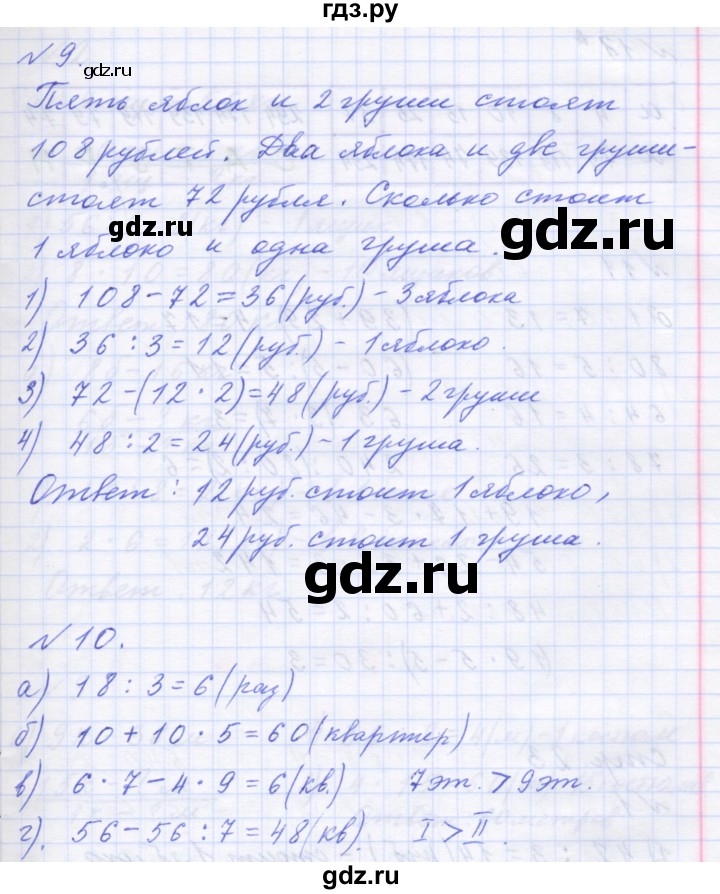 гдз.ру
№ 9.
gdz.ru
Пять яблок и 2 груши стоят
108 рублей. Два яблока и две груши-
стоят 72 рубля. Сколько стоит
gdz.ru
gdz.ru
1 яблоко и одна груша.
1) 108 - 72 = 36 (руб.) - 3 яблока
2) 36 : 3 = 12 (руб.) - 1 яблоко.
3) 72 - (12 · 2) = 48 (руб.) - 2 груши
4) 48 : 2 = 24 (руб.) - 1 груша.
Ответ: 12 руб. стоит 1 яблоко,
24 руб. стоит 1 груша.
gdz.ru
№ 10.
а) 18 : 3 = 6 (раз)
б) 10 + 10 · 5 = 60 (квартер)
в) 6 · 7 - 4 · 9 = 6 (кв.) 7 эт. > 9 эт.
г). 56 - 56 : 7 = 48 (кв). I > II.
gdz.ru